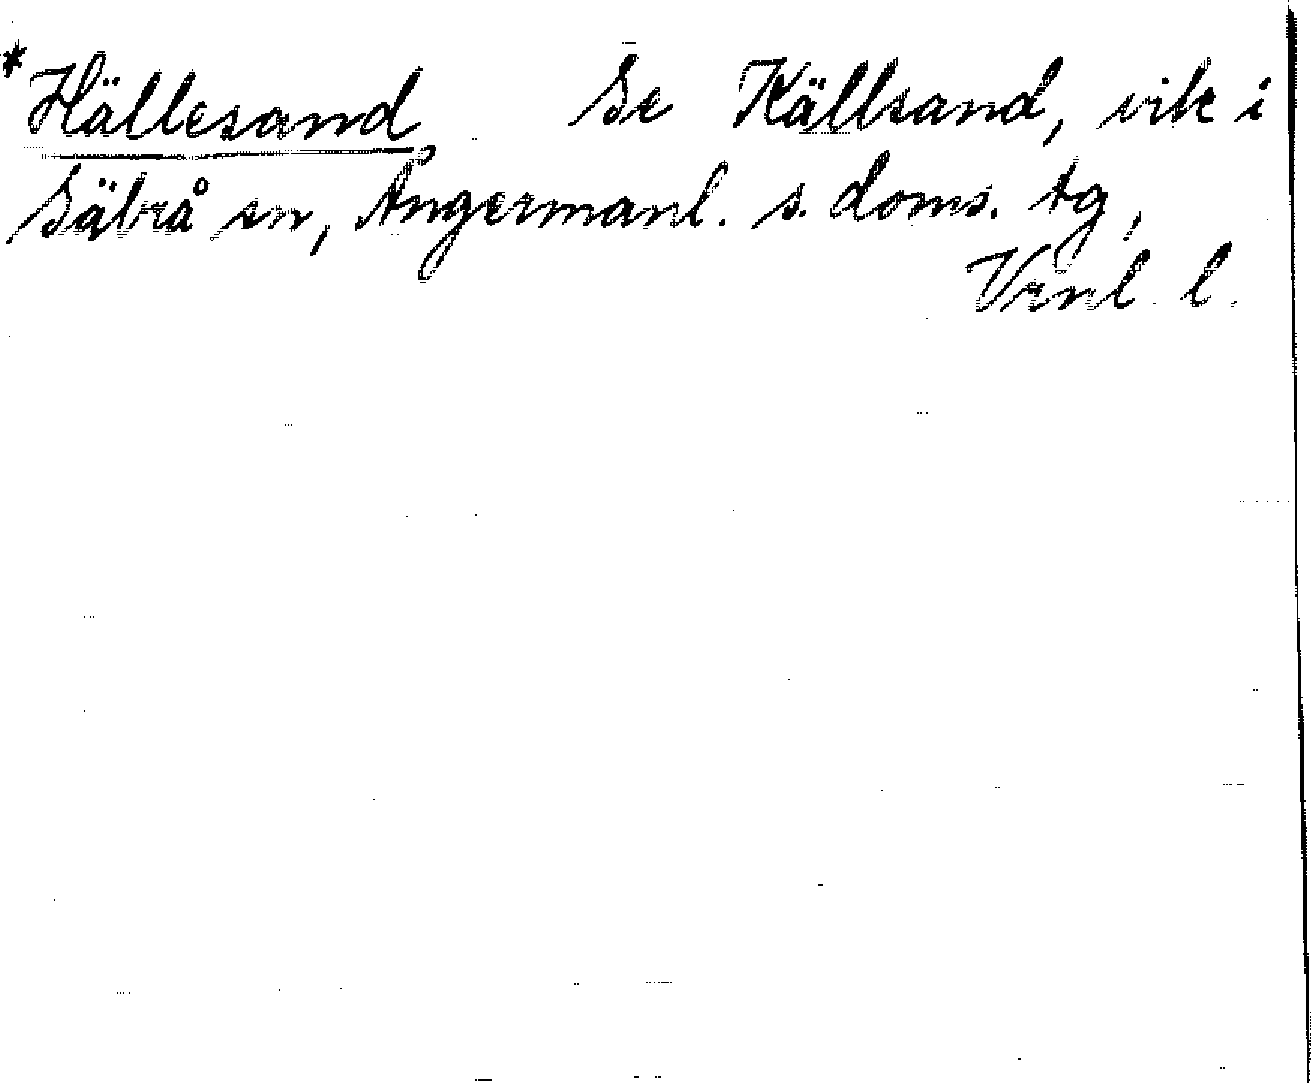 *Hällesand Se Källsand, vik i
Säbrå sn, Ångermanl. s. doms. tg,
Vrnl. l.